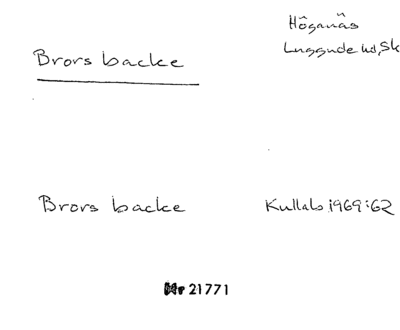 Brors backe
Höganäs
Luggude hd, Sk
Brors backe
Kullabs 1969:62
Nr 21771